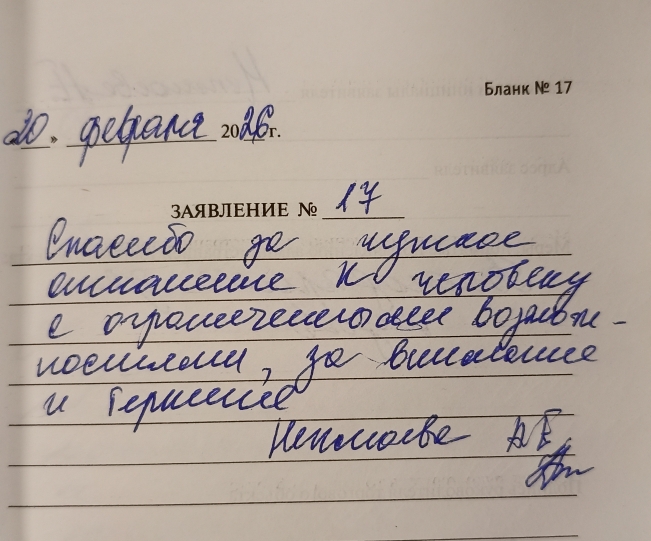 Бланк № 17
«20» февраля 2026 г.
ЗАЯВЛЕНИЕ № 17
Спасибо за чуткое
отношение к человеку
с ограниченными возмож-
ностями, за внимание
и терпение
А Е